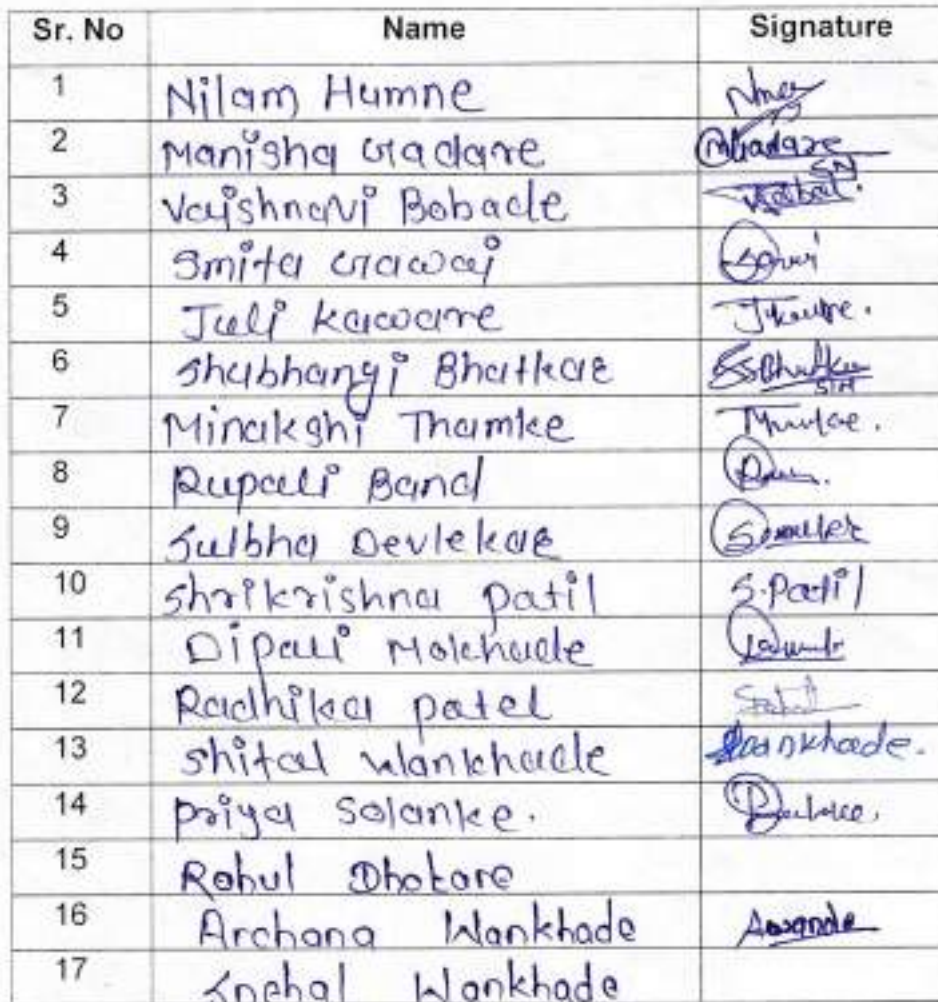 Sr. No Name Signature
1 Nilam Humne
2 Manisha Gadare MGadare SN
3 Vaishnavi Bobade
4 Smita Gawai
5 Juli Kaware
6 Shubhangi Bhatkar SBhatkar SN
7 Minakshi Thamke
8 Rupali Band
9 Sulbha Devlekar
10 Shrikrishna patil S.Patil
11 Dipali Mokhade
12 Radhika patel
13 Shital Wankhade Wankhade.
14 Priya Solanke.
15 Rahul Dhokare
16 Archana Wankhade
17 Snehal Wankhade